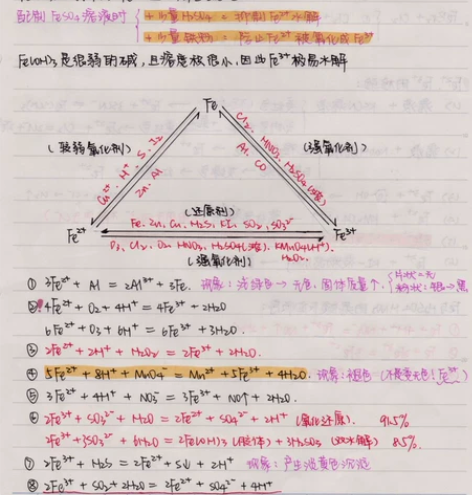 配制FeSO₄溶液时 { +少量H₂SO₄ = 抑制Fe²⁺水解
+少量铁粉 = 防止Fe²⁺被氧化成Fe³⁺
Fe(OH)₃是很弱的碱，且溶度很小，因此Fe³⁺极易水解
Fe
(较弱氧化剂)
Cu²⁺、H⁺、S、I₂
Zn、Al
Cl₂、HNO₃、H₂SO₄(浓)
Al、CO
(强氧化剂)
(还原剂)
Fe、Zn、Cu、H₂S、KI、SO₂、SO₃²⁻
Fe²⁺
Fe³⁺
Cl₂、O₂、HNO₃、H₂SO₄(浓)、KMnO₄(H⁺)、
(强氧化剂) H₂O₂、
① 3Fe²⁺ + Al = 2Al³⁺ + 3Fe. 现象：浅绿色→无色，固体质量个.
② 4Fe²⁺ + O₂ + 4H⁺ = 4Fe³⁺ + 2H₂O
6Fe²⁺ + O₃ + 6H⁺ = 6Fe³⁺ + 3H₂O.
③ 2Fe²⁺ + 2H⁺ + H₂O₂ = 2Fe³⁺ + 2H₂O.
④ 5Fe²⁺ + 8H⁺ + MnO₄⁻ = Mn²⁺ + 5Fe³⁺ + 4H₂O. 现象：褪色 (不是无色! Fe³⁺)
⑤ 3Fe²⁺ + 4H⁺ + NO₃⁻ = 3Fe³⁺ + NO↑ + 2H₂O.
⑥ 2Fe³⁺ + SO₃²⁻ + H₂O = 2Fe²⁺ + SO₄²⁻ + 2H⁺ (氧化还原). 91.5%
2Fe³⁺ + 3SO₃²⁻ + 6H₂O = 2Fe(OH)₃(胶体) + 3H₂SO₃ (双水解) 8.5%.
⑦ 2Fe³⁺ + H₂S = 2Fe²⁺ + S↓ + 2H⁺ 现象：产生淡黄色沉淀
⑧ 2Fe³⁺ + SO₂ + 2H₂O = 2Fe²⁺ + SO₄²⁻ + 4H⁺